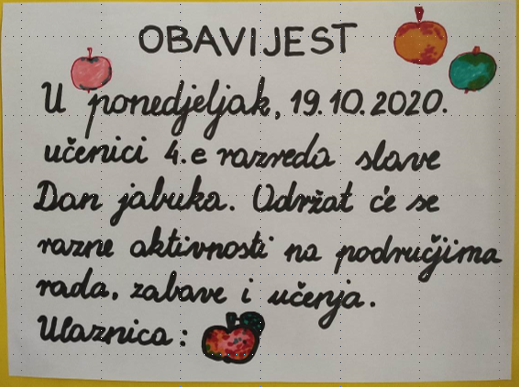 OBAVIJEST
U ponedjeljak, 19.10.2020.
učenici 4.e razreda slave
Dan jabuka. Održat će se
razne aktivnosti na područjima
rada, zabave i učenja.
Ulaznica: